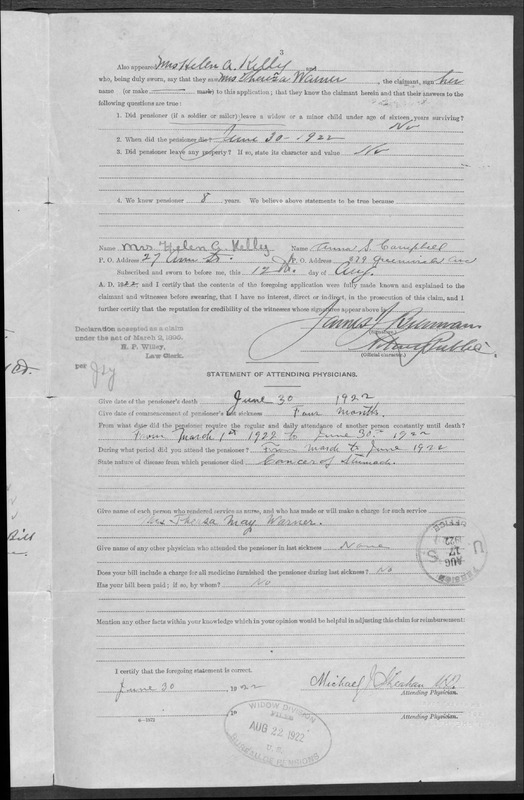 3
Also appeared Mrs Helen A. Kelly
who, being duly sworn, say that they saw Mrs Theresa Warner, the claimant, sign her
name (or make mark) to this application; that they know the claimant herein and that their answers to the
following questions are true:
1. Did pensioner (if a soldier or sailor) leave a widow or a minor child under age of sixteen years surviving?
No
2. When did the pensioner die? June 30 - 1922
3. Did pensioner leave any property? If so, state its character and value No
4. We knew pensioner 8 years. We believe above statements to be true because
Name Mrs Helen G. Kelly Name Anna S. Campbell
P. O. Address 27 Ann St. P. O. Address Greenwich Ave
Subscribed and sworn to before me, this 12th day of Aug.
A. D. 1922 and I certify that the contents of the foregoing application were fully made known and explained to the
claimant and witnesses before swearing, that I have no interest, direct or indirect, in the prosecution of this claim, and I
further certify that the reputation for credibility of the witnesses whose signatures appear above is
Declaration accepted as a claim
under the act of March 2, 1895.
H. P. Willey,
Law Clerk.
per
James
(Signature.)
Notary Public
(Official character.)
STATEMENT OF ATTENDING PHYSICIANS.
Give date of the pensioner's death June 30 1922
Give date of commencement of pensioner's last sickness Four months.
From what date did the pensioner require the regular and daily attendance of another person constantly until death?
From March 1st 1922 to June 30th 1922
During what period did you attend the pensioner? From March to June 1922
State nature of disease from which pensioner died Cancer of Stomach.
Give name of each person who rendered service as nurse, and who has made or will make a charge for such service
Mrs Thersa May Warner.
Give name of any other physician who attended the pensioner in last sickness None
Does your bill include a charge for all medicine furnished the pensioner during last sickness? No
Has your bill been paid; if so, by whom? No
Mention any other facts within your knowledge which in your opinion would be helpful in adjusting this claim for reimbursement:
I certify that the foregoing statement is correct.
June 30, 1922
Michael J. Sheahan M.D.
Attending Physician.
Attending Physician.
6—1572
U.S.
OFFICE
AUG
17
1922
WIDOW DIVISION
FILED
AUG 22 1922
U. S.
BUREAU OF PENSIONS
Bill